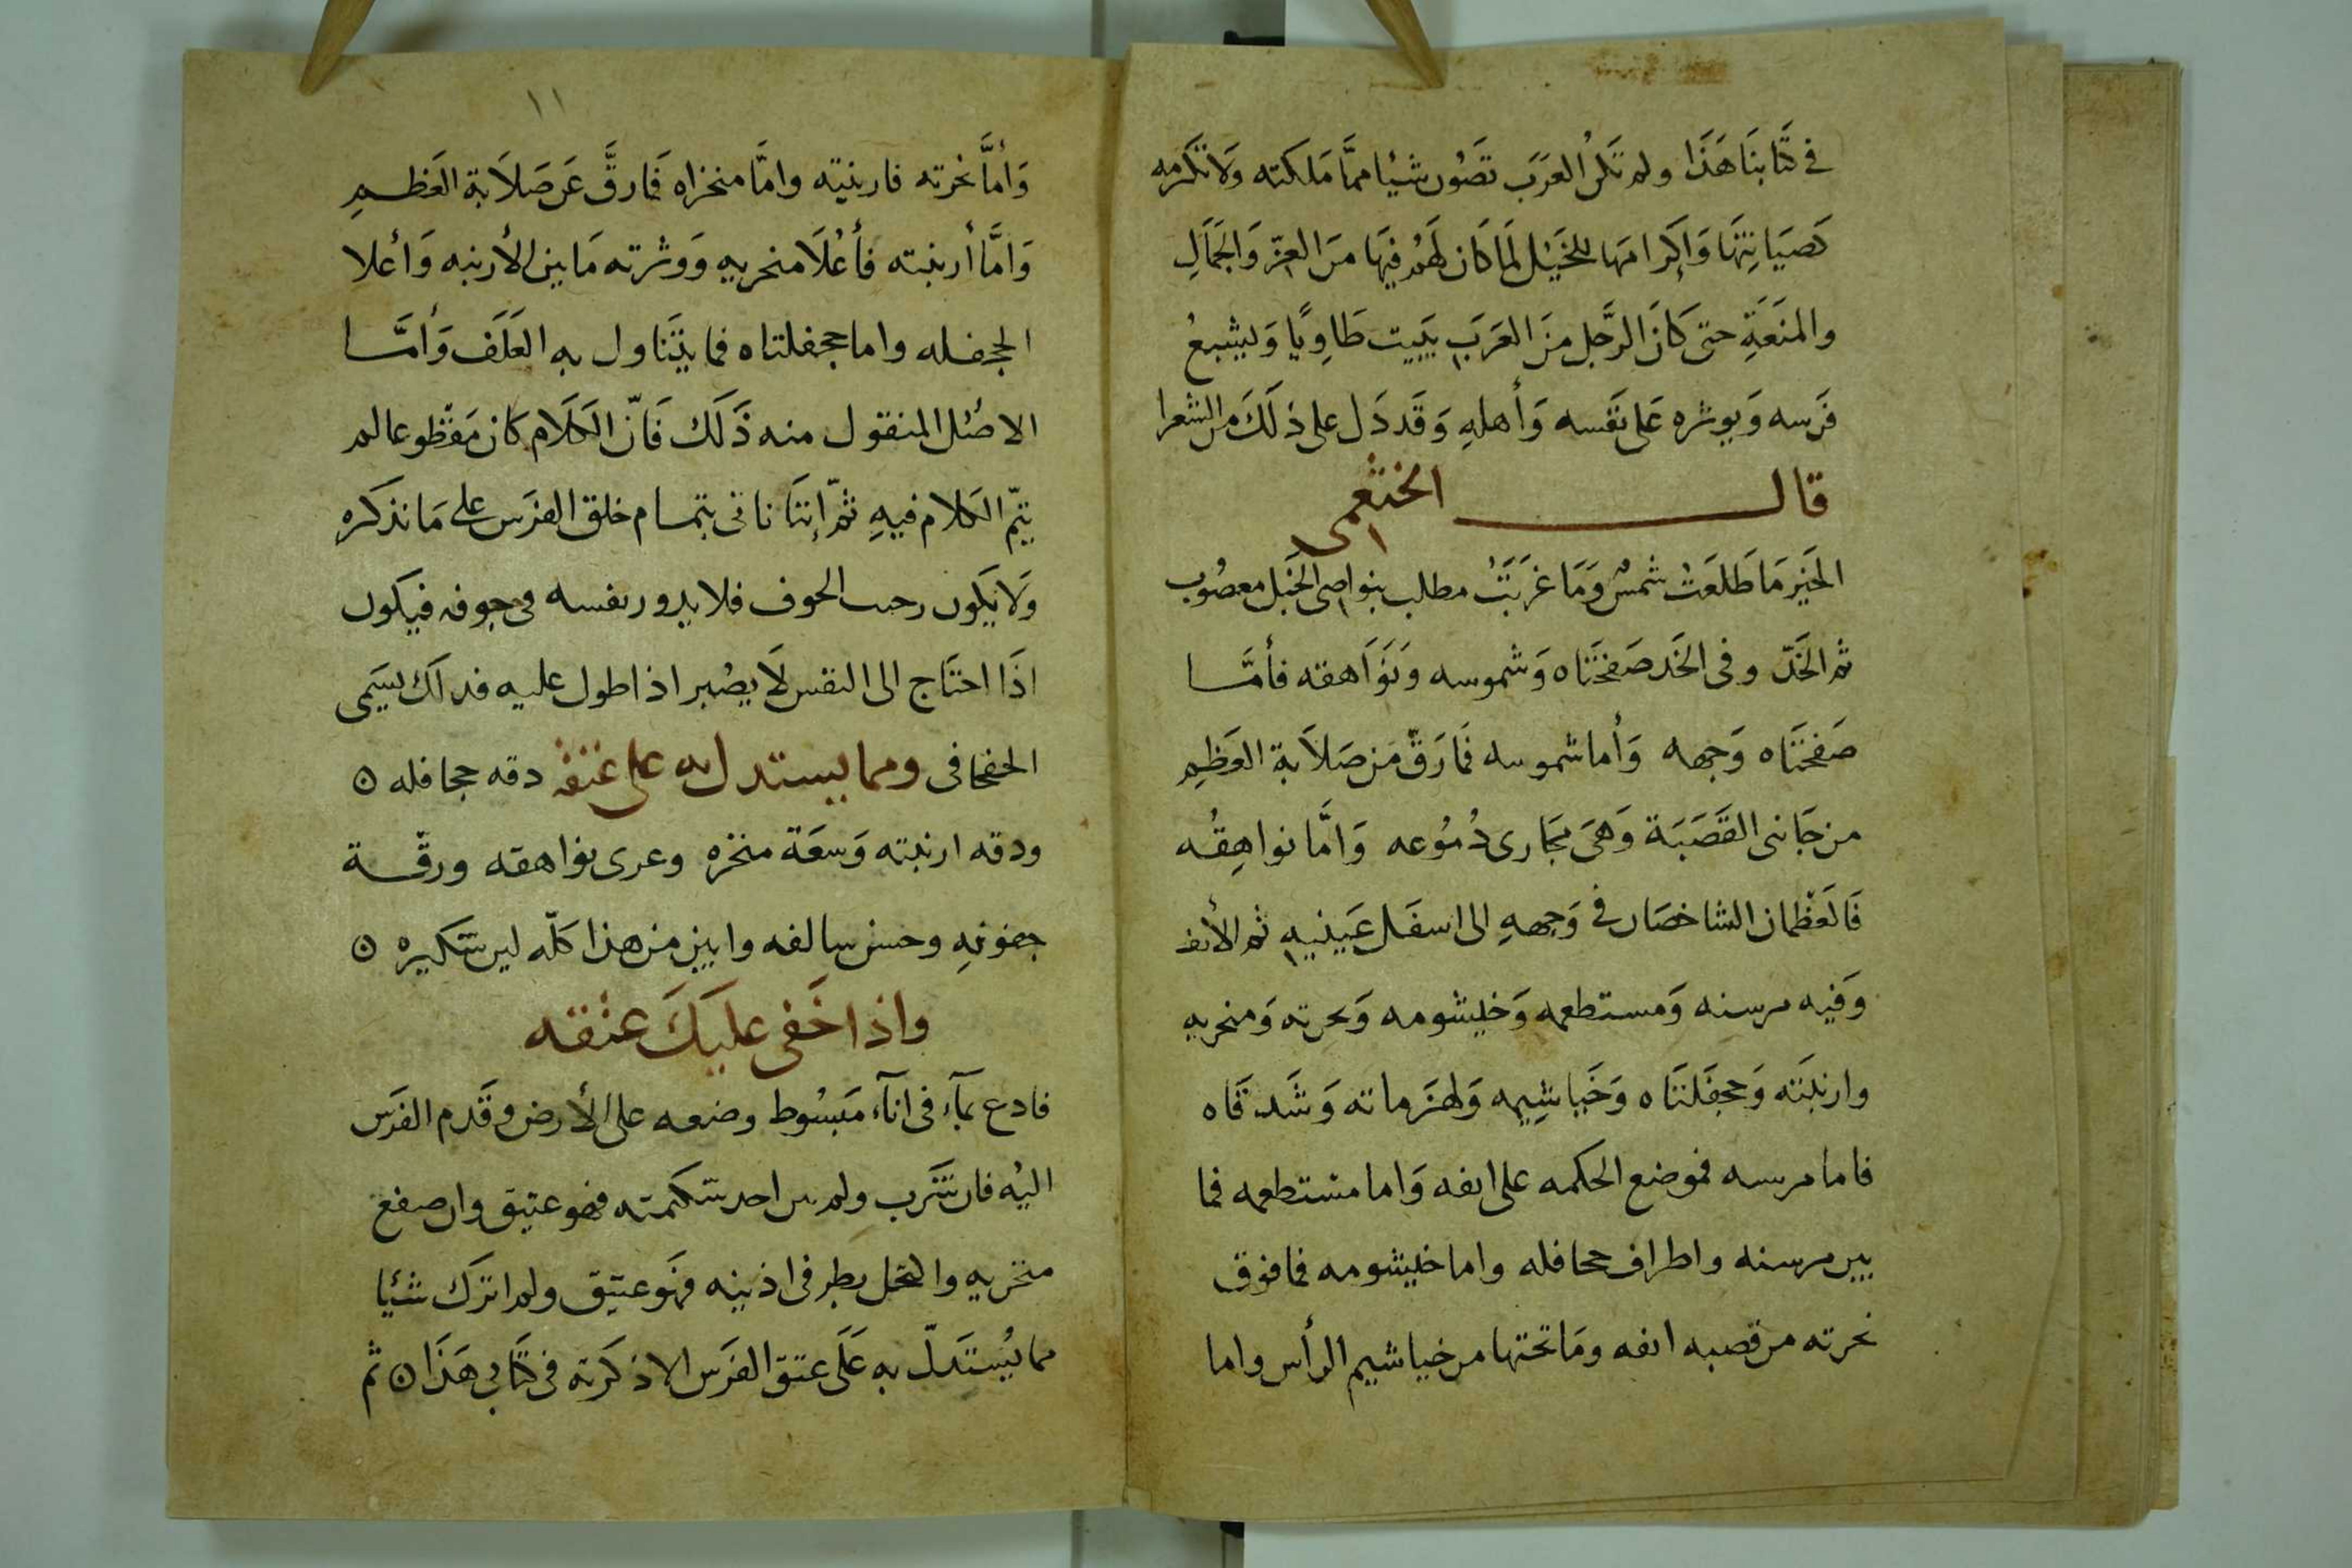 في كتابنا هَذَا ولم تكن العَرَب تصُون شيئا ممَّا مَلكته وَلا تكرمه
كصَيَانتِهَا وَاكِرامهَا للخَيْل لمَا كَان لَهُم فيهَا مَن العِزّ وَالجَمَالِ
والمنَعَةِ حتى كَانَ الرَّجل مِنَ العَرَبِ يَبيت طَاوِيًا وَيشبعُ
فَرسه وَيوثره عَلى نفسه وَأهلهِ وَقَد دَل على ذلَكَ من الشعرا
قال الخثعمي
الخَير مَا طَلعَتْ شمسٌ وَمَا غرَبَتْ مطلب بنواصي الخَيل معصُوب
ثم الخَدّ وفي الخَد صَفحَتَاه وَشموسه وَنَوَاهقه فأمَّا
صَفحتَاه وَجهه وَأما شموسه فمَا رَقّ مَن صَلاَبة العَظِم
من جَانبي القَصَبَة وَهيَ مجَاري دُمُوعه وَامَّا نواهِقُه
فَالعَظمان الشاخصَان في وَجههِ الى اسفَل عَينيهِ ثم الأنف
وَفيه مرسنه وَمستطعمه وَخيشومه وَنحرته وَمنخريه
وارنبَته وَجحفَلتَاه وَخَياشِيمه وَلهزماته وَشَدقَاه
فاما مرسنه فموضع الحكمه على انفه وَاما مستطعمه فما
بين مرسنه واطراف جحافله واما خيشومه فما فوق
نحرته من قصبه انفه ومَا تحتها من خياشيم الرأس واما
١١
وَأمَّا نخرته فارنبته وامَّا منخراه فمَا رقَّ عَن صَلاَبة العَظم
وَامَّا أرنبته فأعْلَا منخريه وَوثرته مَا بين الأرنبه وَأعلا
الجحفله واما جحفلتاه فما يتَناول به العَلَف وَأمَّا
الاصْل المنقول منه ذَلَك فَانّ الكَلَام كان مَقطوعا لم
يتمّ الكلام فيهِ ثمّ إننَا ناتي بتمام خلق الفرَس على مَا نذكره
وَلا يكَون رحب الجوف فلا يدور نفسه في جوفه فيكون
اذَا احتَاج الى النفس لَا يصْبر اذا طول عليه فذلك يسَمى
الخفخافي ومما يستدل به على عتقه دقه جحافله ن
ودقه ارنبته وَسعَة منخره وعرى نواهقه ورقّة
جفونهِ وحسن سالفه وابين من هذا كلّه لين شكيره ن
واذا خَفي عليَكَ عتقه
فادع بمآء في انآء مَبسُوط وضعه على الأرض وقَدم الفرَس
اليْه فان شَرب ولم يثن احد سنكمته فهو عتيق وان صفع
منخريه وا نظر في اذنيه فهَو عتيق ولم اترك شيئا
مما يُستَدلّ به عَلَى عتق الفرَس الا ذكَرته في كتَابي هَذَا ن ثم